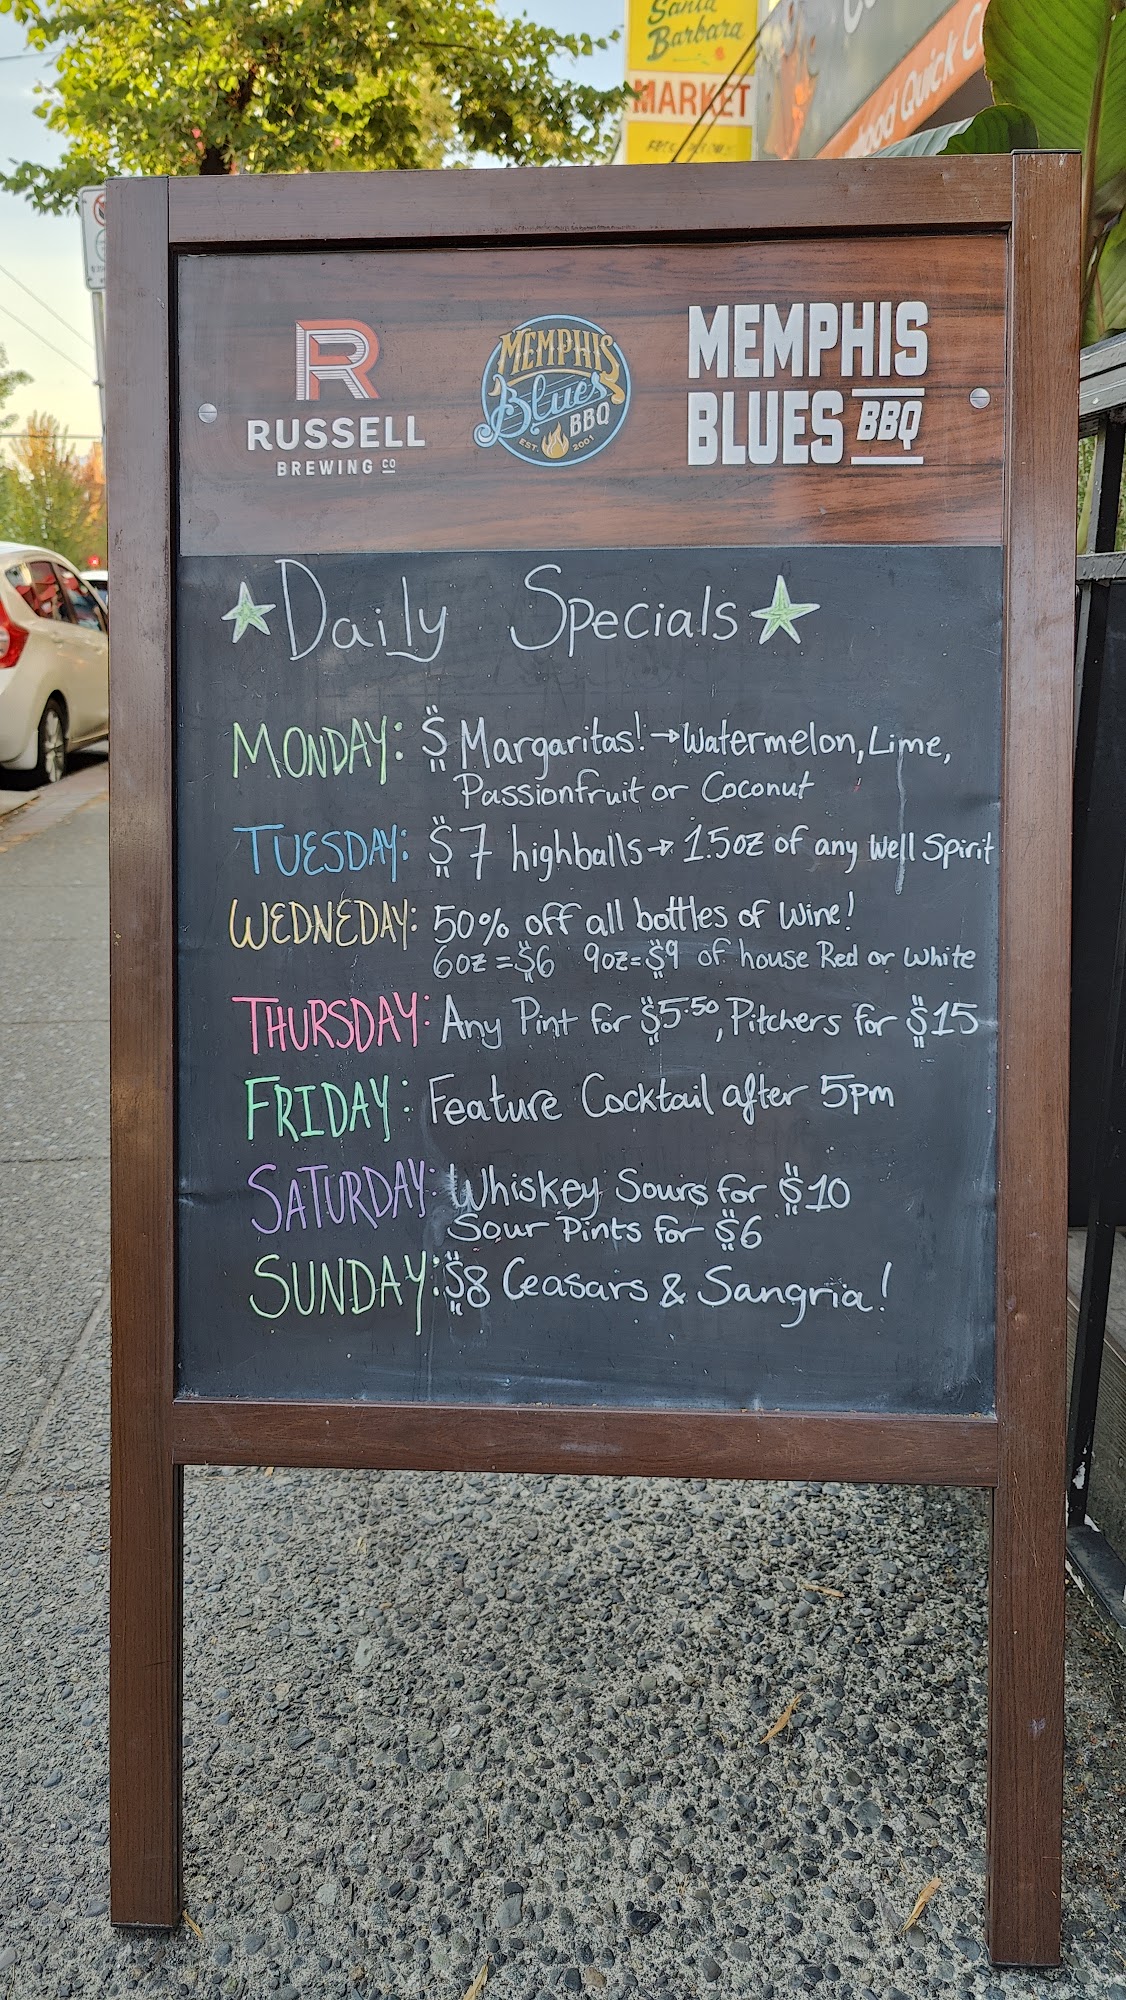 Santa
Barbara
MARKET
Quick
R
RUSSELL
BREWING CO
MEMPHIS
Blues
BBQ
EST. 2001
MEMPHIS
BLUES BBQ
Daily Specials
MONDAY: $ Margaritas! → Watermelon, Lime,
Passionfruit or Coconut
TUESDAY: $7 highballs → 1.5oz of any Well Spirit
WEDNEDAY: 50% off all bottles of Wine!
6oz = $6 9oz = $9 of house Red or White
THURSDAY: Any Pint for $5.50, Pitchers for $15
FRIDAY: Feature Cocktail after 5pm
SATURDAY: Whiskey Sours for $10
Sour Pints for $6
SUNDAY: $8 Ceasars & Sangria!